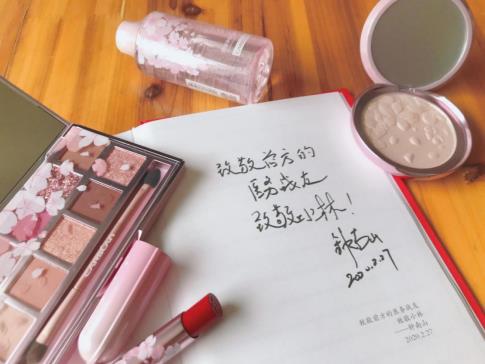 致敬前方的
医务战友
致敬小林!
钟南山
2020.2.27
致敬前方的医务战友
致敬小林
——钟南山
2020.2.27